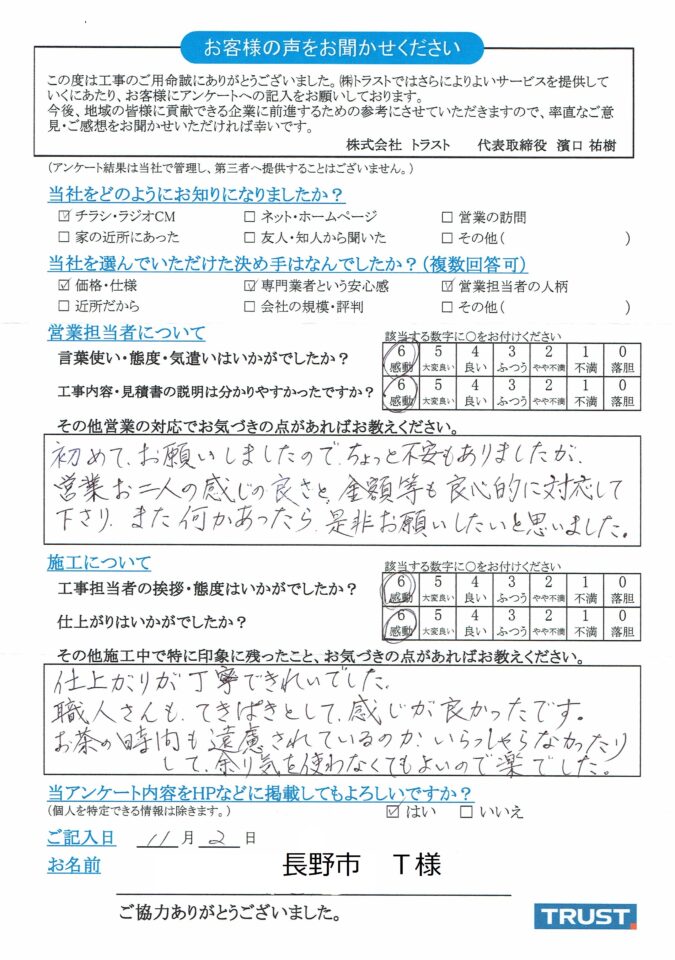 お客様の声をお聞かせください
この度は工事のご用命誠にありがとうございました。㈱トラストではさらによりよいサービスを提供して
いくにあたり、お客様にアンケートへの記入をお願いしております。
今後、地域の皆様に貢献できる企業に前進するための参考にさせていただきますので、率直なご意
見・ご感想をお聞かせいただければ幸いです。
株式会社 トラスト 代表取締役 濱口 祐樹
(アンケート結果は当社で管理し、第三者へ提供することはございません。)
当社をどのようにお知りになりましたか？
☑ チラシ・ラジオCM □ ネット・ホームページ □ 営業の訪問
□ 家の近所にあった □ 友人・知人から聞いた □ その他( )
当社を選んでいただけた決め手はなんでしたか？(複数回答可)
☑ 価格・仕様 ☑ 専門業者という安心感 ☑ 営業担当者の人柄
□ 近所だから □ 会社の規模・評判 □ その他( )
営業担当者について 該当する数字に○をお付けください
言葉使い・態度・気遣いはいかがでしたか？ 6 5 4 3 2 1 0
感動 大変良い 良い ふつう やや不満 不満 落胆
工事内容・見積書の説明は分かりやすかったですか？ 6 5 4 3 2 1 0
感動 大変良い 良い ふつう やや不満 不満 落胆
その他営業の対応でお気づきの点があればお教えください。
初めて、お願いしましたので、ちょっと不安もありましたが、
営業お二人の感じの良さと、金額等も良心的に対応して
下さり、また何かあったら、是非お願いしたいと思いました。
施工について 該当する数字に○をお付けください
工事担当者の挨拶・態度はいかがでしたか？ 6 5 4 3 2 1 0
感動 大変良い 良い ふつう やや不満 不満 落胆
仕上がりはいかがでしたか？ 6 5 4 3 2 1 0
感動 大変良い 良い ふつう やや不満 不満 落胆
その他施工中で特に印象に残ったこと、お気づきの点があればお教えください。
仕上がりが丁寧できれいでした。
職人さんも、てきぱきとして、感じが良かったです。
お茶の時間も遠慮されているのか、いらっしゃらなかったり
して、余り気を使わなくてもよいので楽でした。
当アンケート内容をHPなどに掲載してもよろしいですか？
(個人を特定できる情報は除きます。) ☑ はい □ いいえ
ご記入日 11 月 2 日
お名前 長野市 T様
ご協力ありがとうございました。
TRUST.